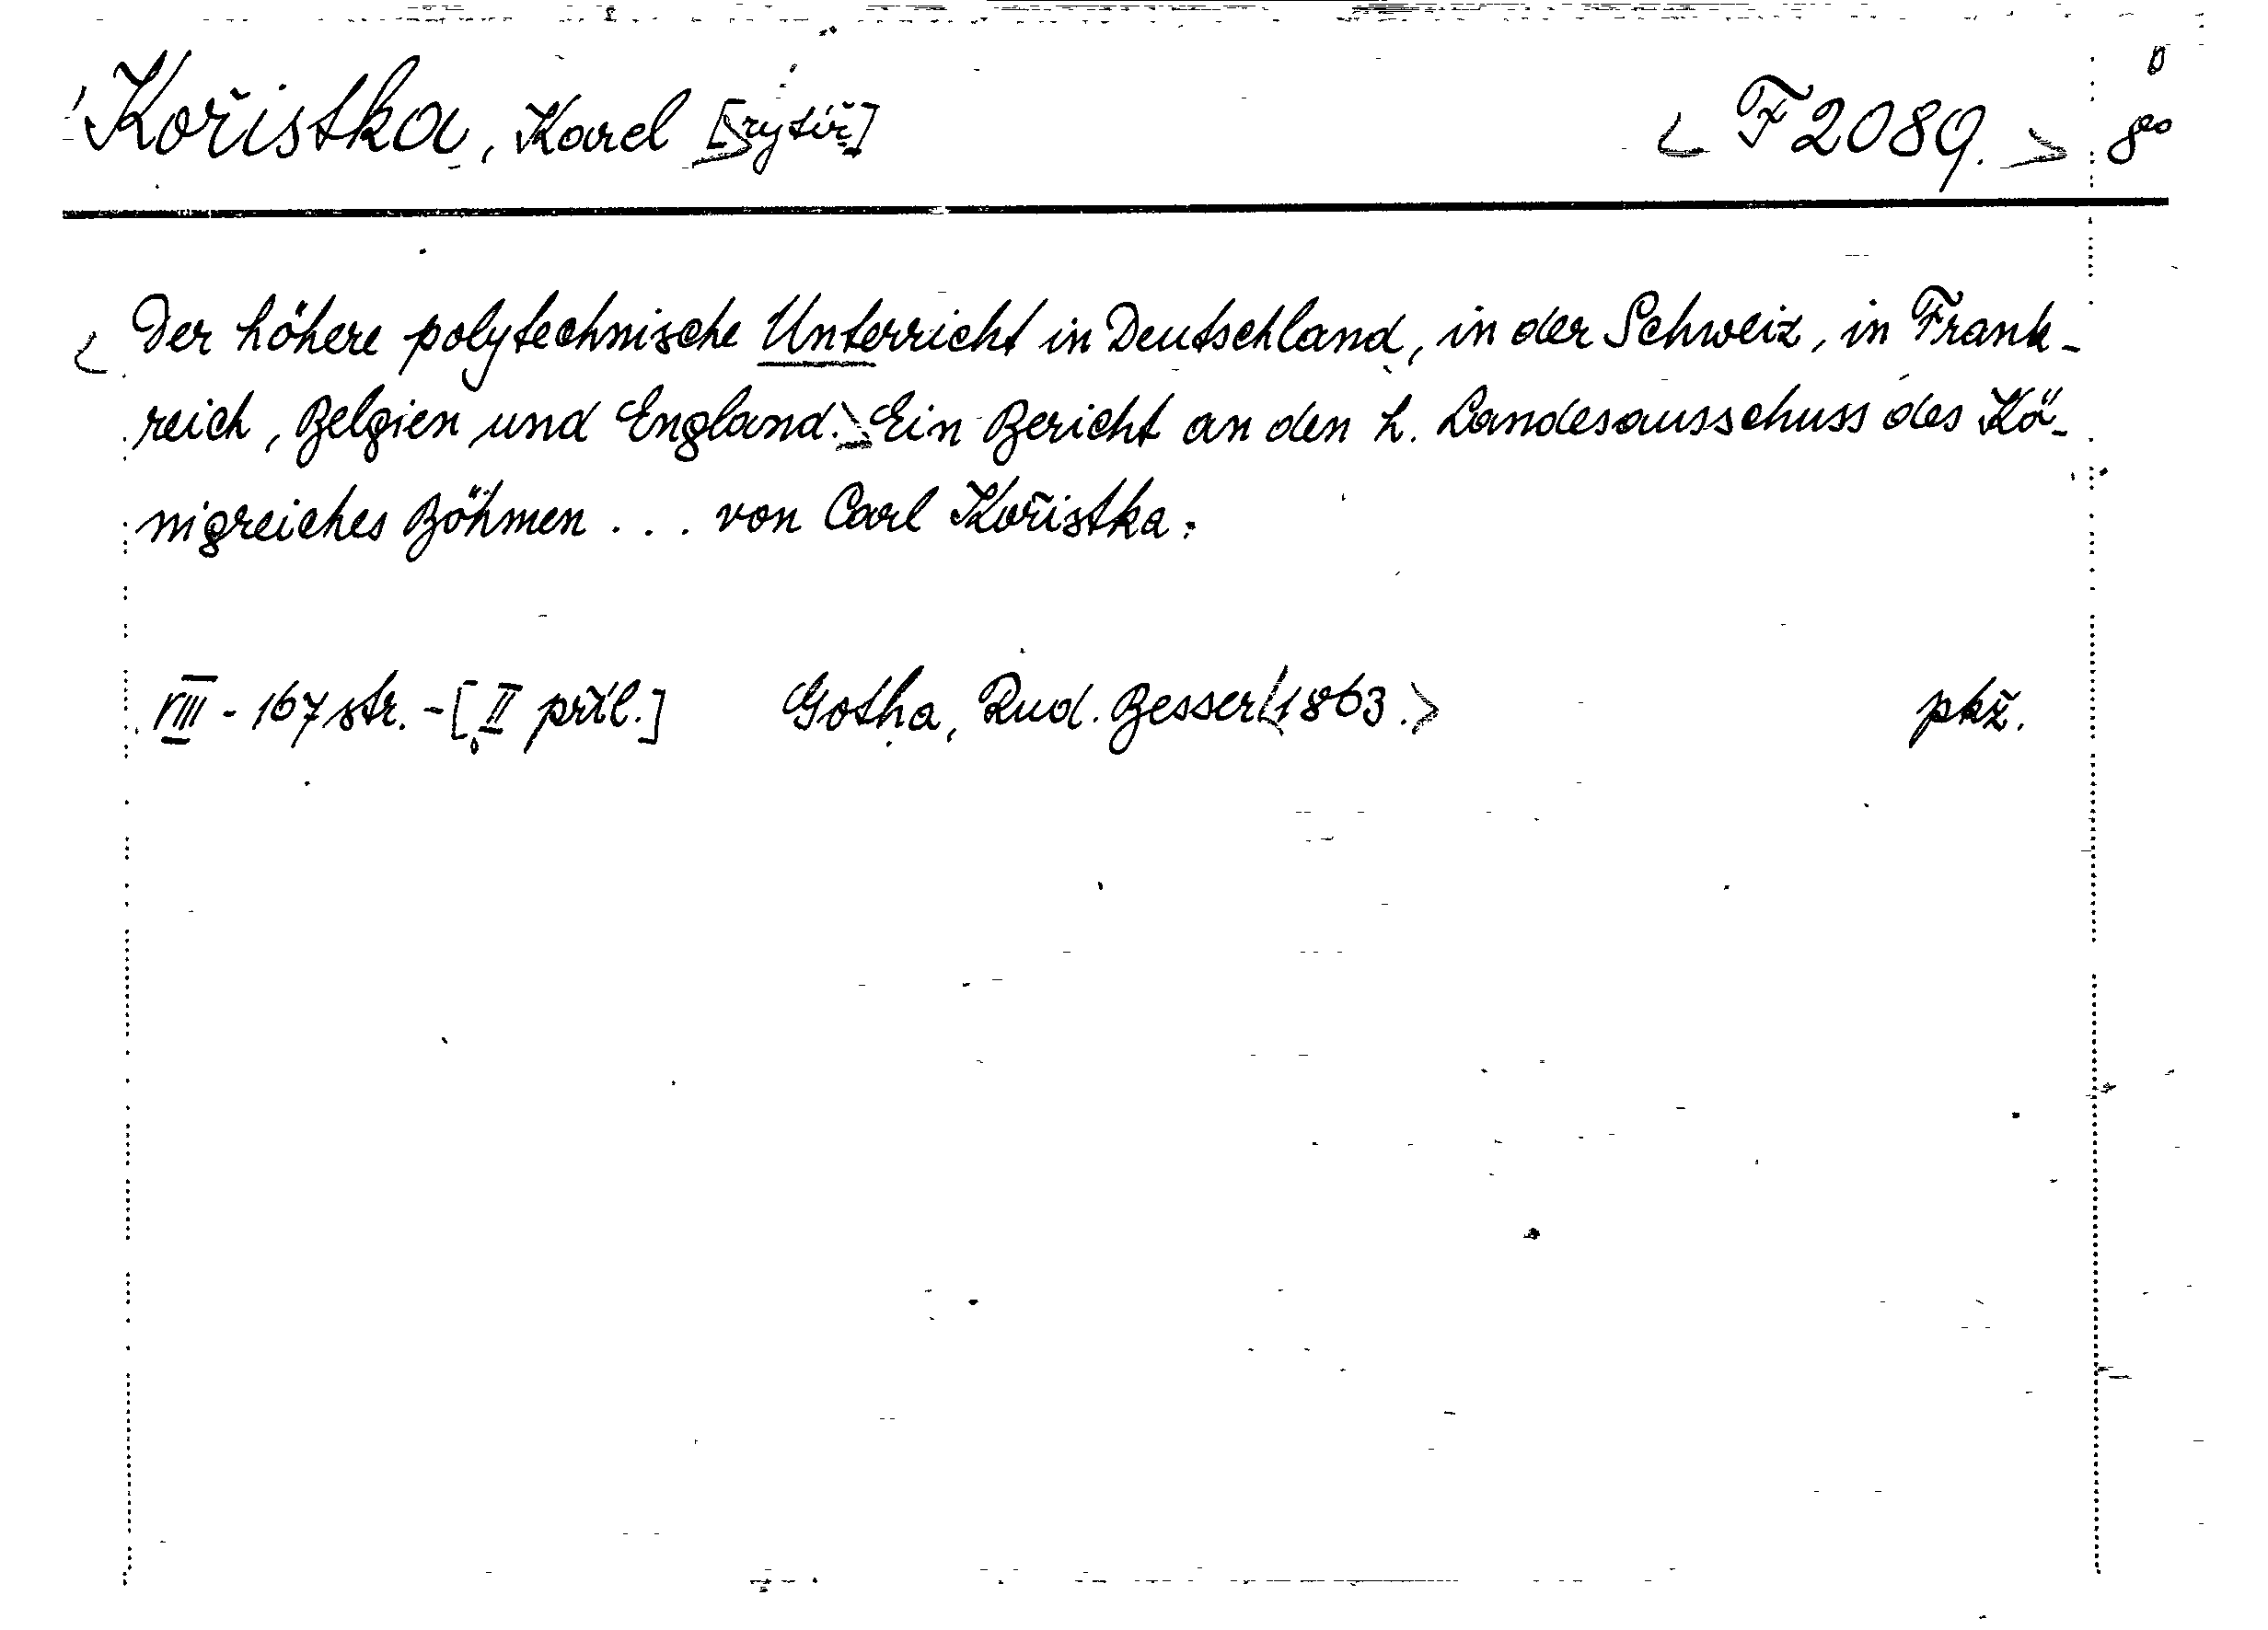 Kořistka, Karel [rytíř] < F 2089. > 8°
< Der höhere polytechnische Unterricht in Deutschland, in der Schweiz, in Frank-
reich, Belgien und England.> Ein Bericht an den h. Landesausschuss des Kö-
nigreiches Böhmen ... von Carl Kořistka.
VIII - 167 str. - [II příl.] Gotha, Rud. Besser <1863.> pkž.